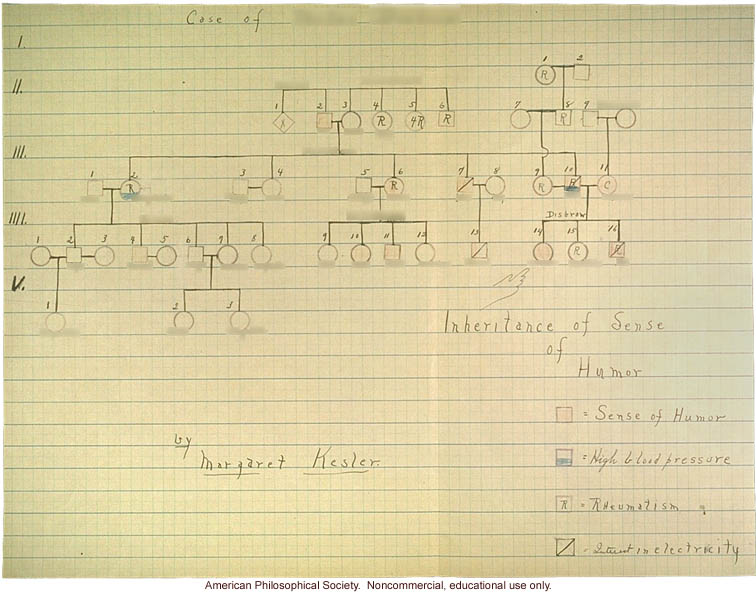 Case of
I.
1 2
R
II.
1 2 3 4 5 6 7 8 9
R 4R R R
III.
1 2 3 4 5 6 7 8 9 10 11
R R R R C
IIII.
Disbrow
1 2 3 4 5 6 7 8 9 10 11 12 13 14 15 16
R R
V.
1 2 3
Inheritance of Sense
of
Humor
= Sense of Humor
by
Margaret Kesler.
= High blood pressure
R = Rheumatism
= Interest in electricity
American Philosophical Society. Noncommercial, educational use only.